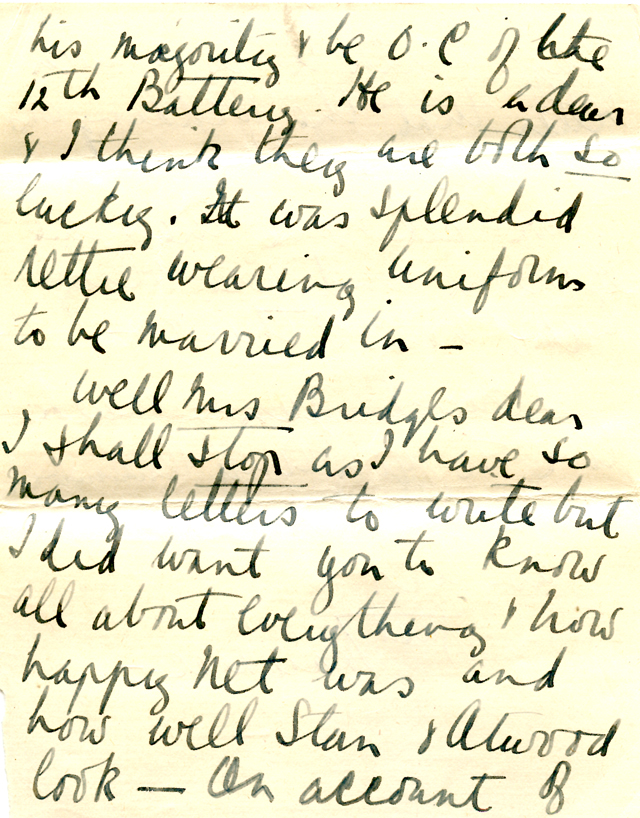 his majority & be O.C of the
12th Battery. He is a dear
& I think they are both so
lucky. It was splendid
Nettie wearing uniform
to be married in –
Well Mrs Bridges dear
I shall stop as I have so
many letters to write but
I did want you to know
all about everything & how
happy Net was and
how well Stan & Atwood
look — On account of